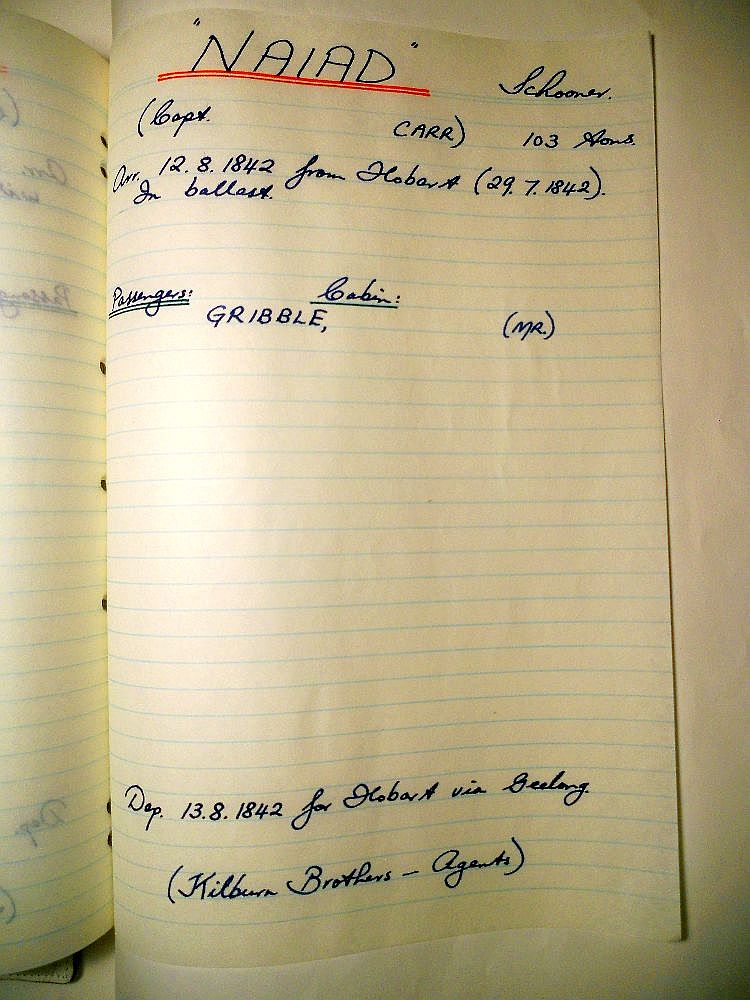 "NAIAD" Schooner.
(Capt. CARR) 103 tons.
Arr. 12.8.1842 from Hobart (29.7.1842).
In ballast.
Passengers: Cabin:
GRIBBLE, (MR.)
Dep. 13.8.1842 for Hobart via Geelong.
(Kilburn Brothers - Agents)